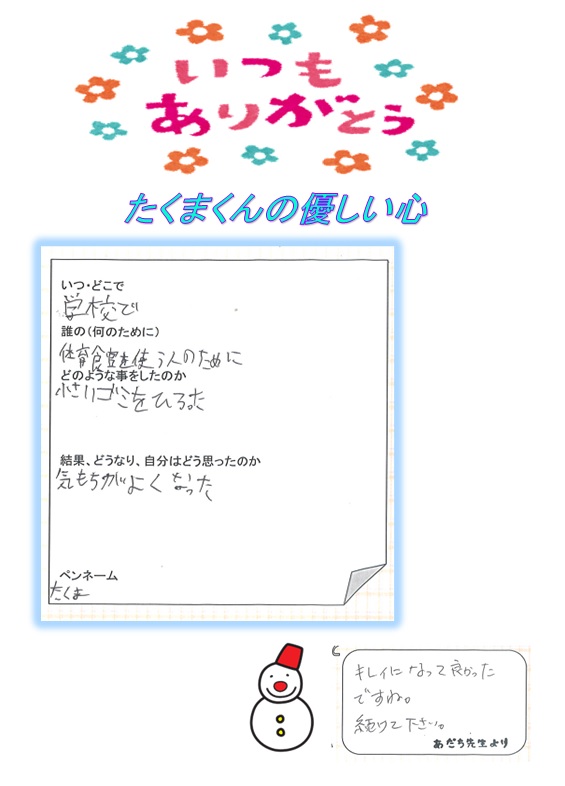 いつも
ありがとう
たくまくんの優しい心
いつ・どこで
学校で
誰の（何のために）
体育館を使う人のために
どのような事をしたのか
小さいゴミをひろった
結果、どうなり、自分はどう思ったのか
気もちがよくなった
ペンネーム
たくま
キレイになって良かった
ですね。
続けて下さい。
あだち先生より